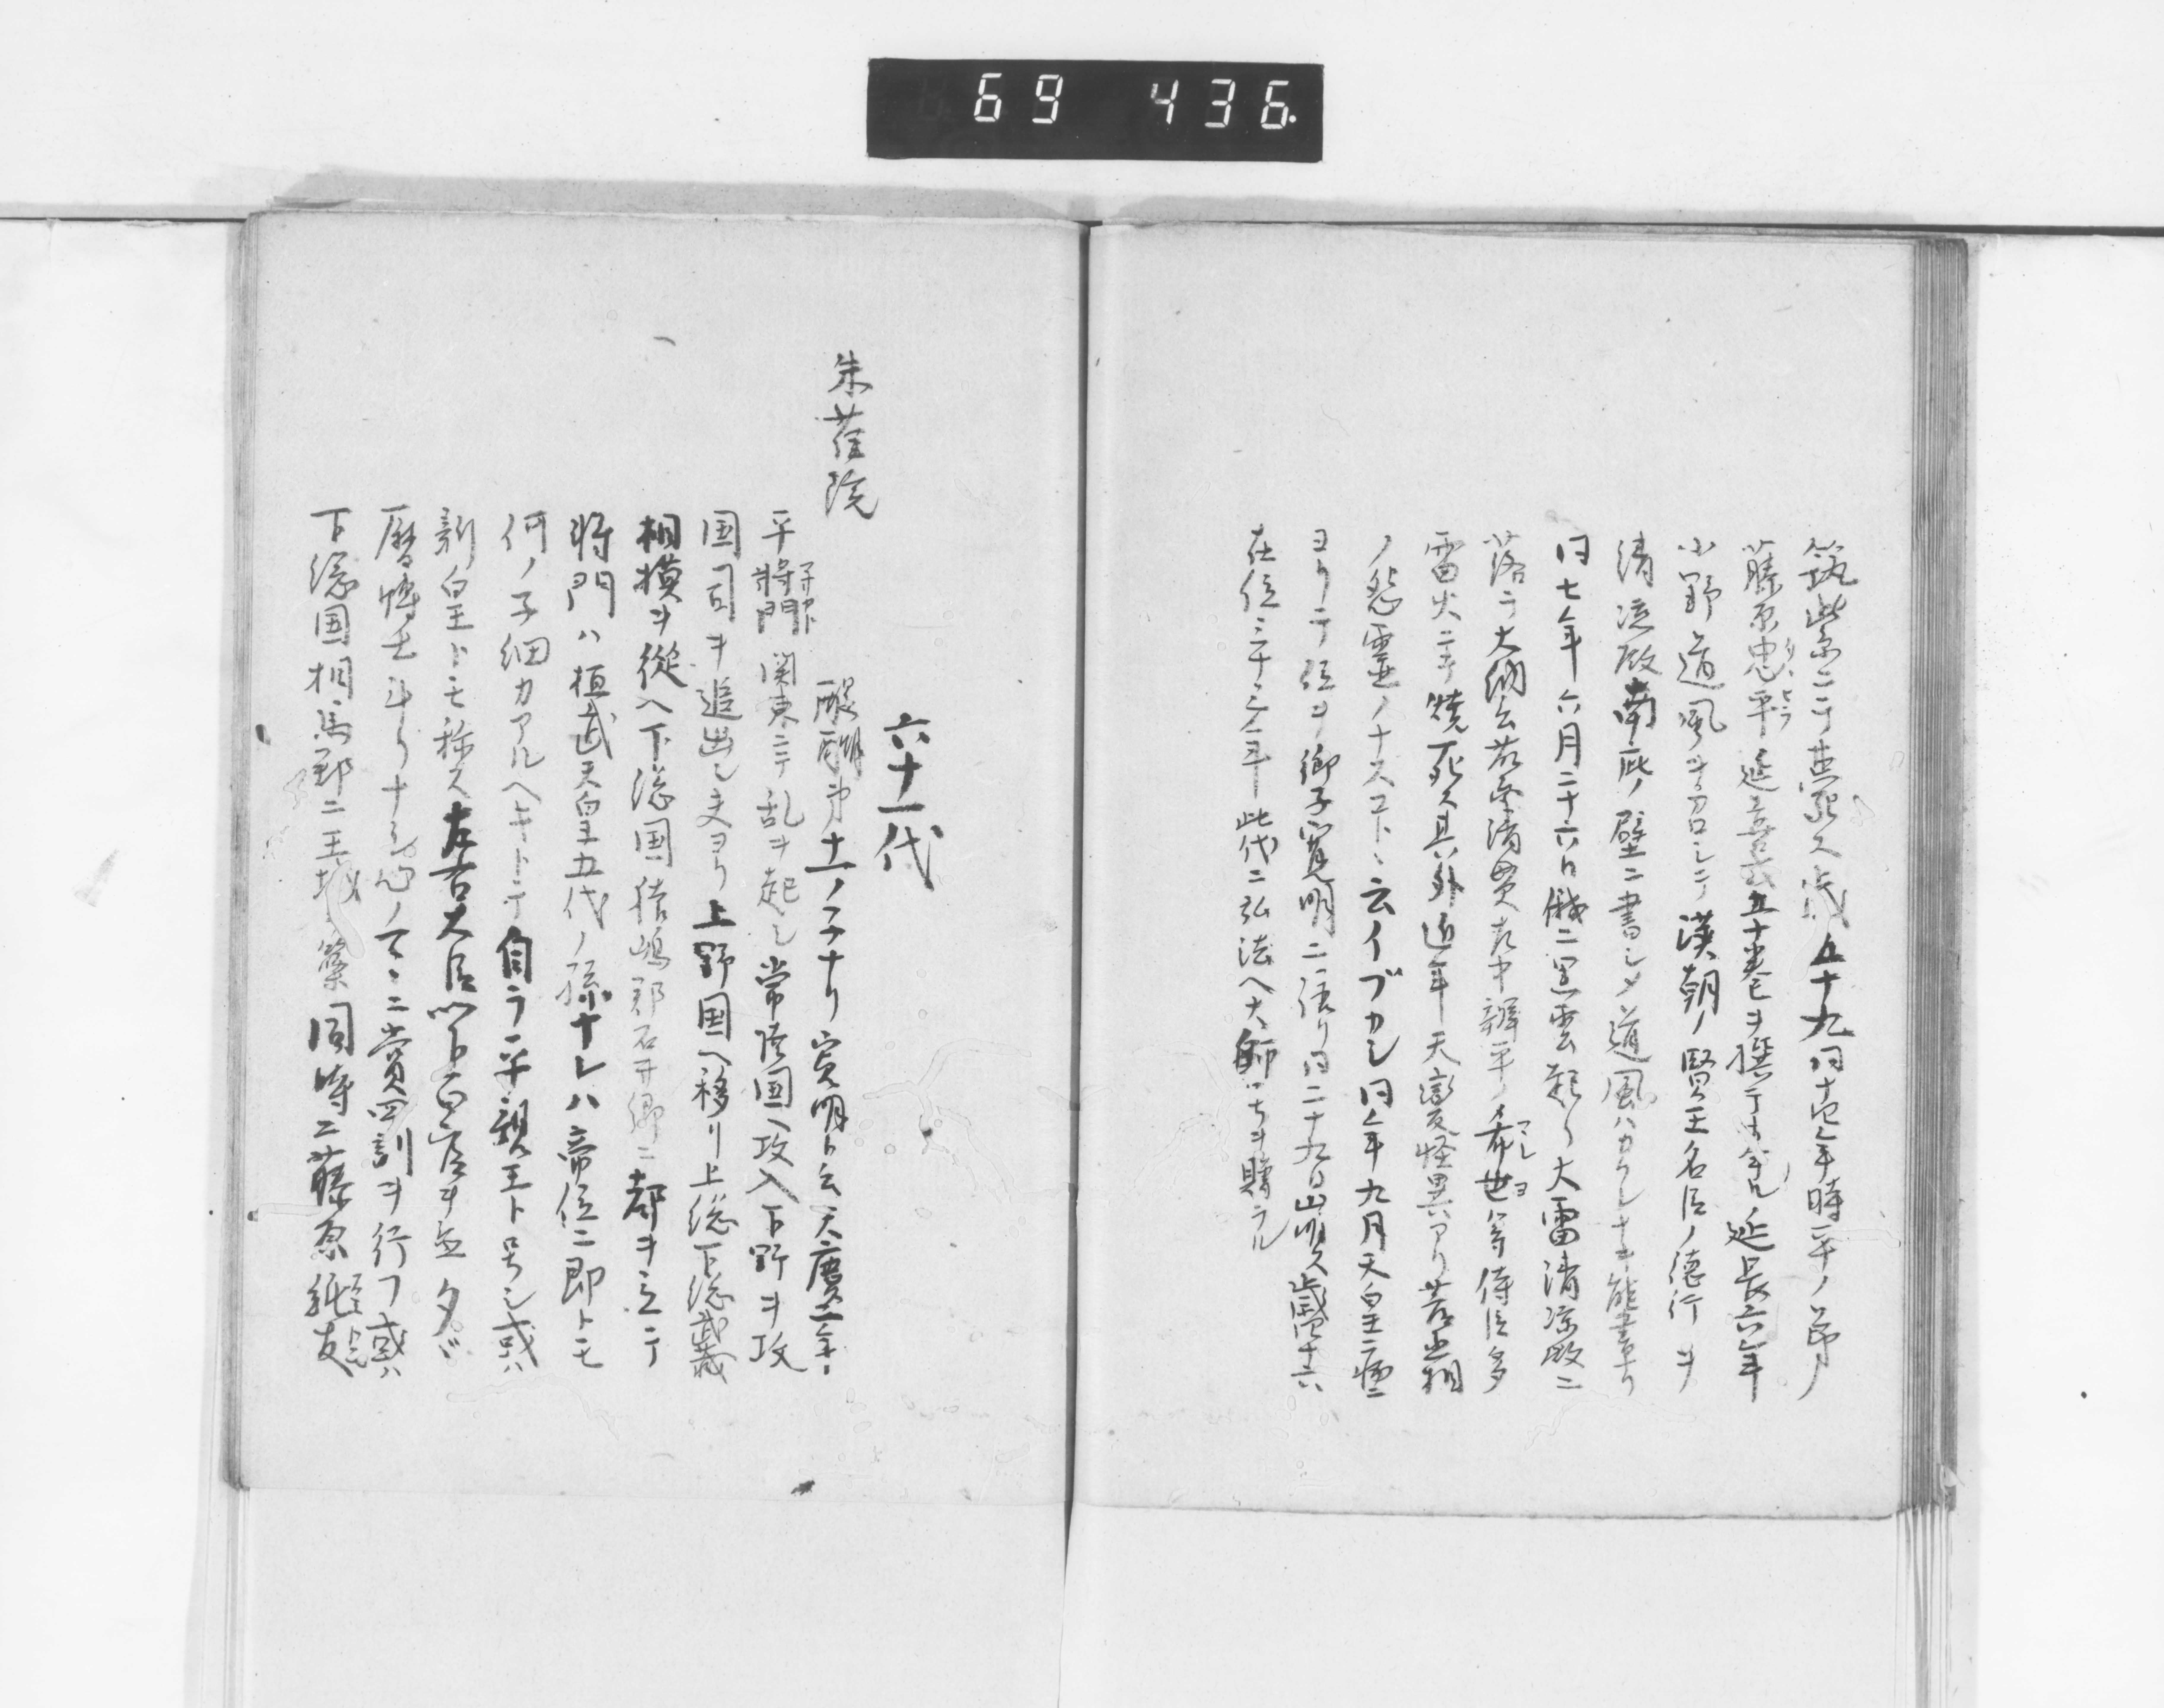 69 436
筑紫ニテ薨ス歳五十九同十四年時平ノ弟
藤原忠平延喜式五十巻ヲ撰テ延長六年
小野道風ヲ召シテ漢朝ノ賢王名臣ノ徳行ヲ
清涼殿南庇ノ壁ニ書シメ道風ハカクレナキ能書ナリ
同七年六月二十六日俄ニ黒雲起り大雷清涼殿ニ
落テ大納言藤原清貫右中辨平ノ希世等侍臣多
雷火ニテ焼死ス其外近年天變怪異アリ菅丞相
ノ怨霊ノナスコト云イブカシ同年九月天皇病ニ
ヨリテ位ヲ御子寛明ニ譲り同二十九日崩ス歳四十六
在位三十三年此代ニ弘法ヘ大師号ヲ贈ラル
六十一代
朱雀院
醍醐第十一ノ子ナリ寛明ト云天慶二年
平將門関東ニテ乱ヲ起シ常陸国ヘ攻入下野ヲ攻
国司ヲ追出シ夫ヨリ上野国ヘ移リ上総下総武蔵
相摸ヲ從ヘ下総国猿嶋郡石井郷ニ都ヲ立テ
將門ハ桓武天皇五代ノ孫ナレハ帝位ニ即トモ
何ノ子細カアルヘキトテ自ラ平親王ト号シ或ハ
新皇トモ称ス左右大臣以下百官ヲ立タゞ
暦博士斗リナシ心ノマヽニ賞罰ヲ行フ或ハ
下総国相馬郡ニ王城ヲ築同時ニ藤原純友